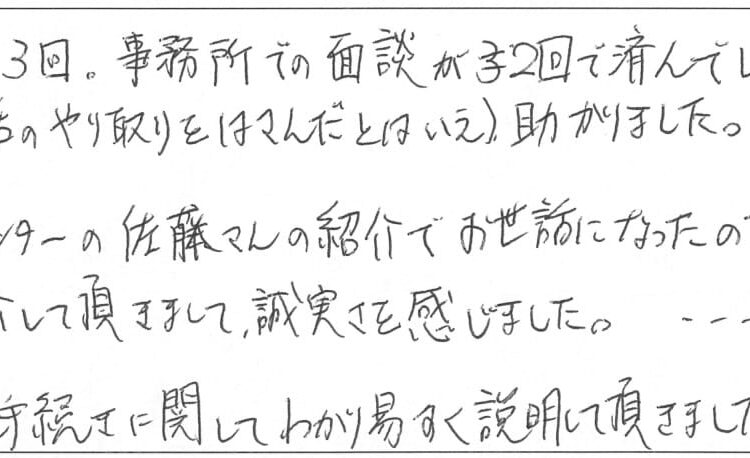 3回。事務所での面談が2回で済んでし
のやり取りをはさんだとはいえ)助かりました。
ンターの佐藤さんの紹介でお世話になったの
して頂きまして、誠実さを感じました。 ---
手続きに関してわかり易すく説明して頂きました